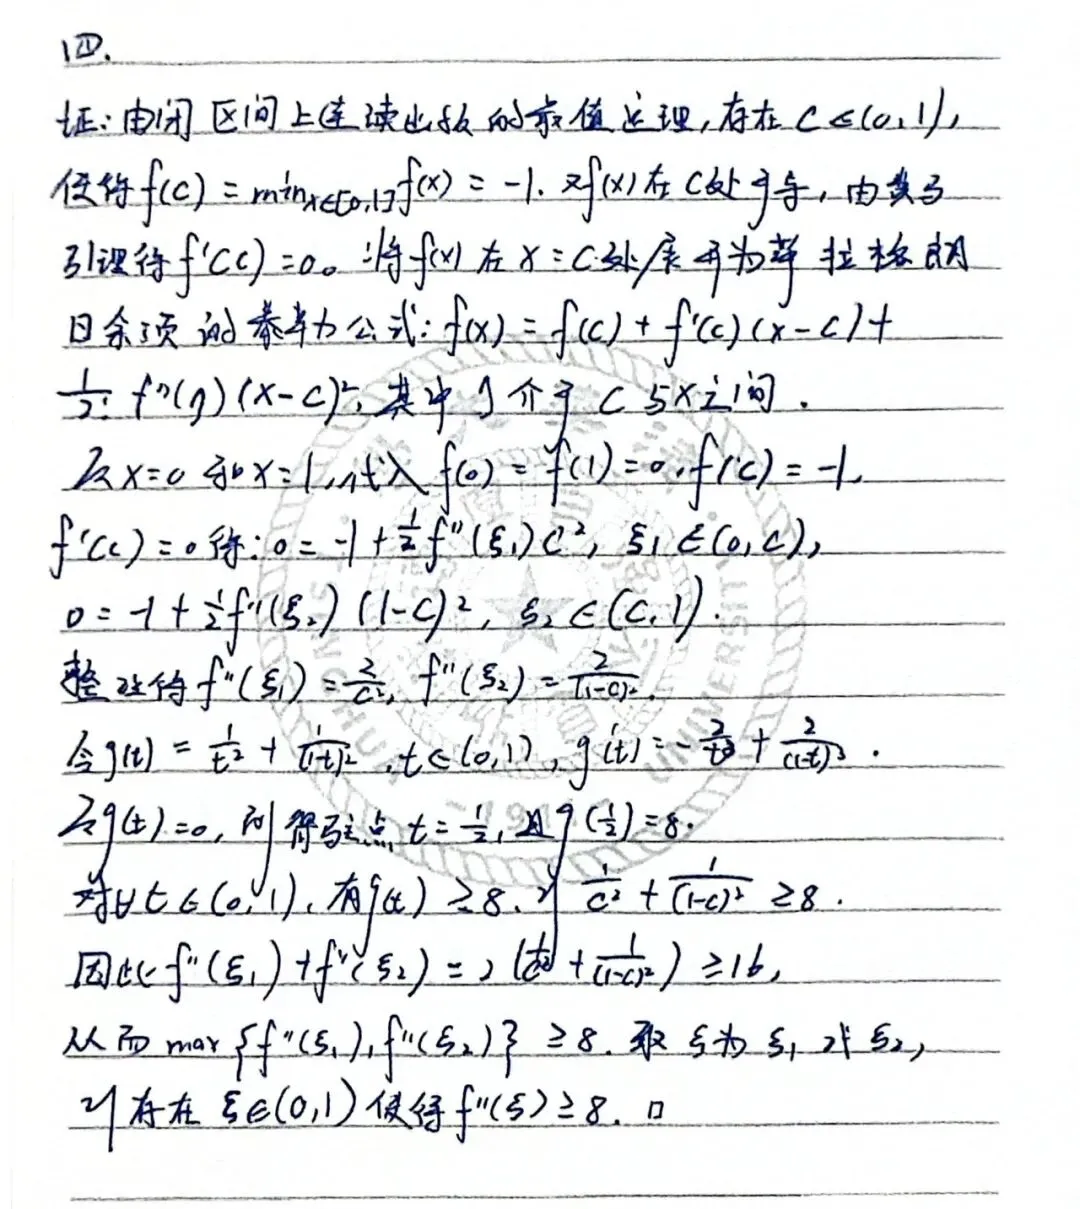 四.
证:由闭区间上连续函数的最值定理,存在 C∈(0,1),
使得 f(C) = min_{x∈[0,1]} f(x) = -1. 又f(x)在C处可导,由费马
引理得 f'(C) = 0。将f(x)在 x=C处展开为带拉格朗
日余项的泰勒公式: f(x) = f(c) + f'(c)(x-c) +
1/2! f''(η)(x-c)², 其中 η 介于 C 与 x 之间.
取 x=0 和 x=1, 代入 f(0) = f(1) = 0, f(c) = -1,
f'(c) = 0 得: 0 = -1 + 1/2 f''(ξ₁) C², ξ₁∈(0,c),
0 = -1 + 1/2 f''(ξ₂) (1-C)², ξ₂∈(C,1).
整理得 f''(ξ₁) = 2/C², f''(ξ₂) = 2/(1-C)².
令g(t) = 1/t² + 1/(1-t)², t∈(0,1), g'(t) = -2/t³ + 2/(1-t)³.
令g'(t)=0, 解得驻点 t=1/2, 且 g(1/2)=8.
对∀t∈(0,1), 有g(t) ≥8, 则 1/C² + 1/(1-C)² ≥8.
因此 f''(ξ₁) + f''(ξ₂) = 2(1/C² + 1/(1-C)²) ≥16,
从而 max {f''(ξ₁), f''(ξ₂)} ≥8. 取 ξ为 ξ₁ 或 ξ₂,
则存在 ξ∈(0,1) 使得 f''(ξ) ≥8. □
UNIVERSITY